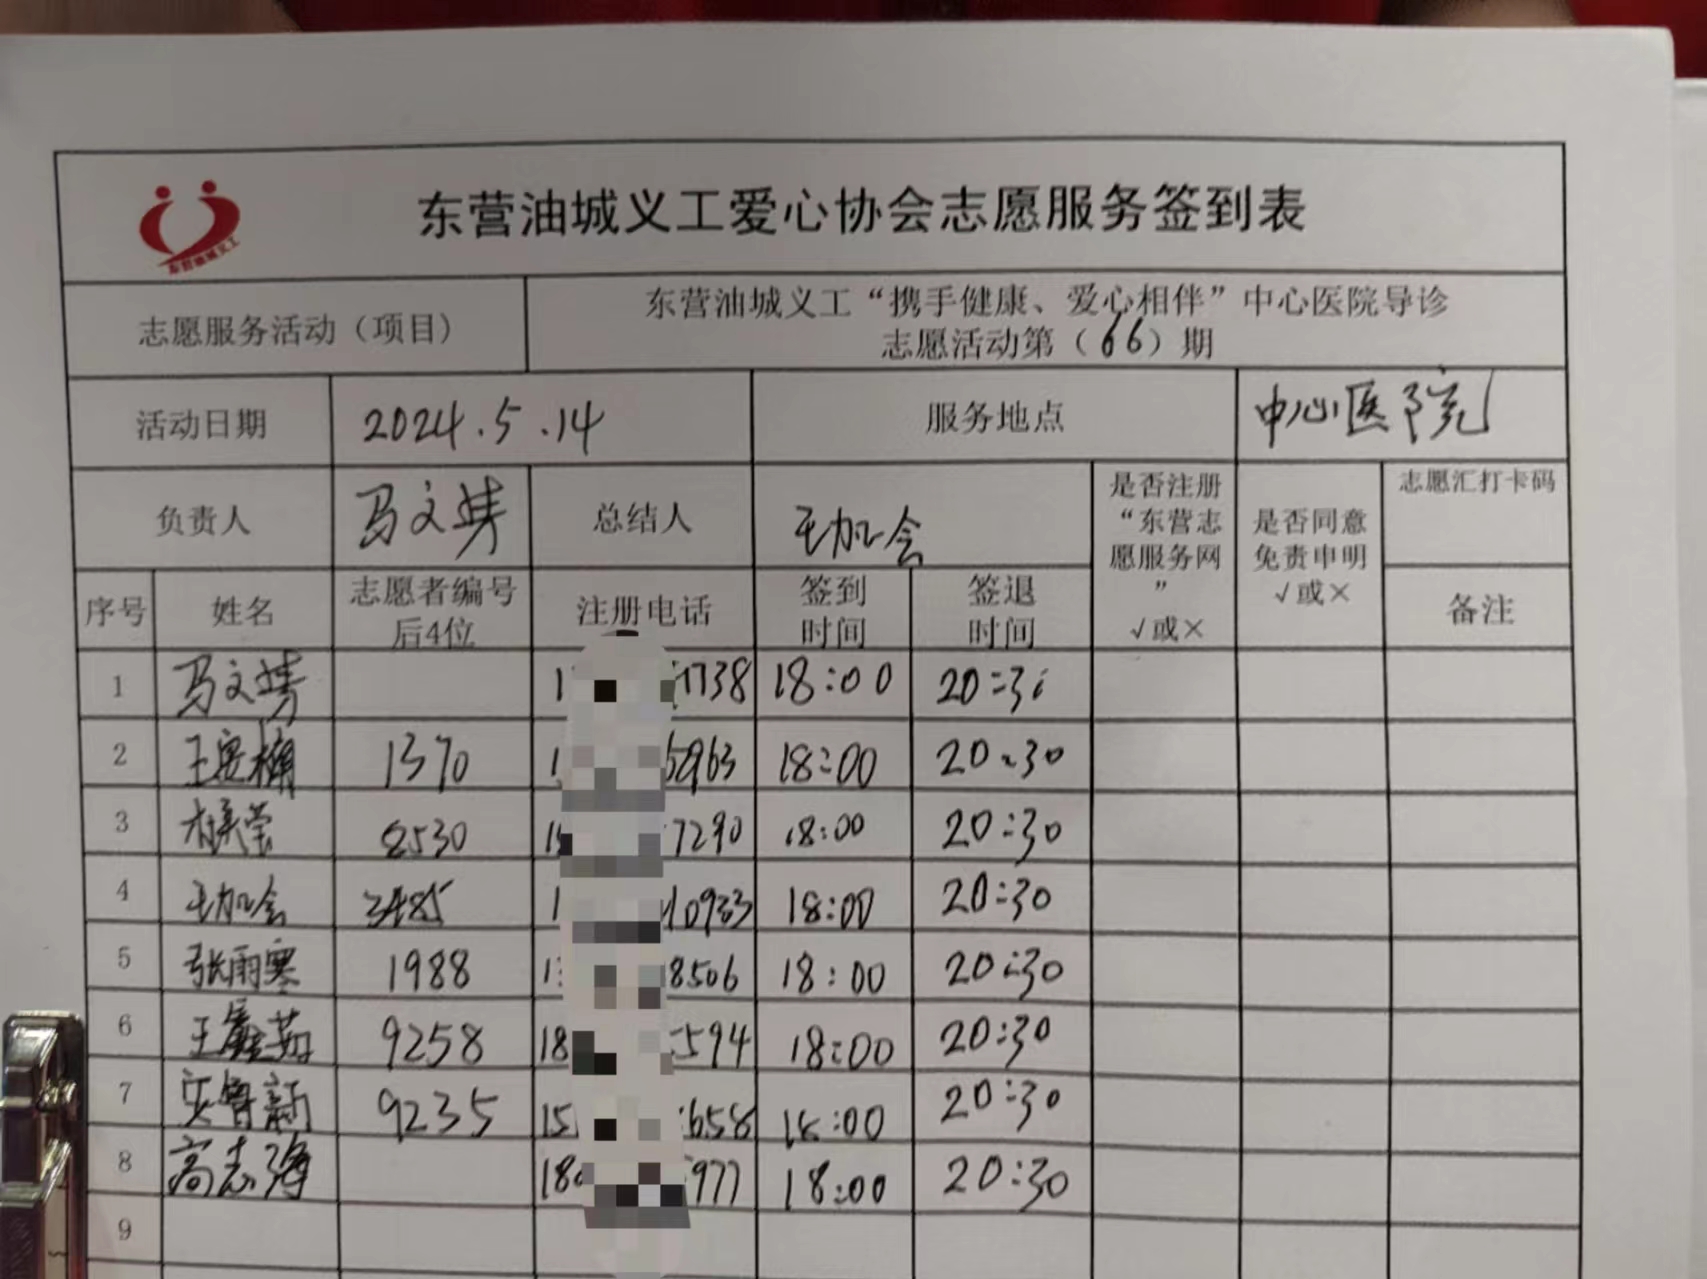 东营油城义工爱心协会志愿服务签到表
东营油城义工
志愿服务活动（项目）
东营油城义工“携手健康、爱心相伴”中心医院导诊
志愿活动第（66）期
活动日期 2024.5.14 服务地点 中心医院
负责人 马文 总结人 王加会
是否注册
“东营志
愿服务网
”
√或×
是否同意
免责申明
√或×
志愿汇打卡码
备注
序号 姓名 志愿者编号
后4位
注册电话 签到
时间
签退
时间
1 马文 1 1738 18:00 20:30
2 王 1370 1 5963 18:00 20:30
3 8530 15 7290 18:00 20:30
4 王加会 3485 1 10933 18:00 20:30
5 张雨寒 1988 13 8506 18:00 20:30
6 王鑫茹 9258 18 594 18:00 20:30
7 鲁新 9235 15 658 18:00 20:30
8 高志海 180 977 18:00 20:30
9